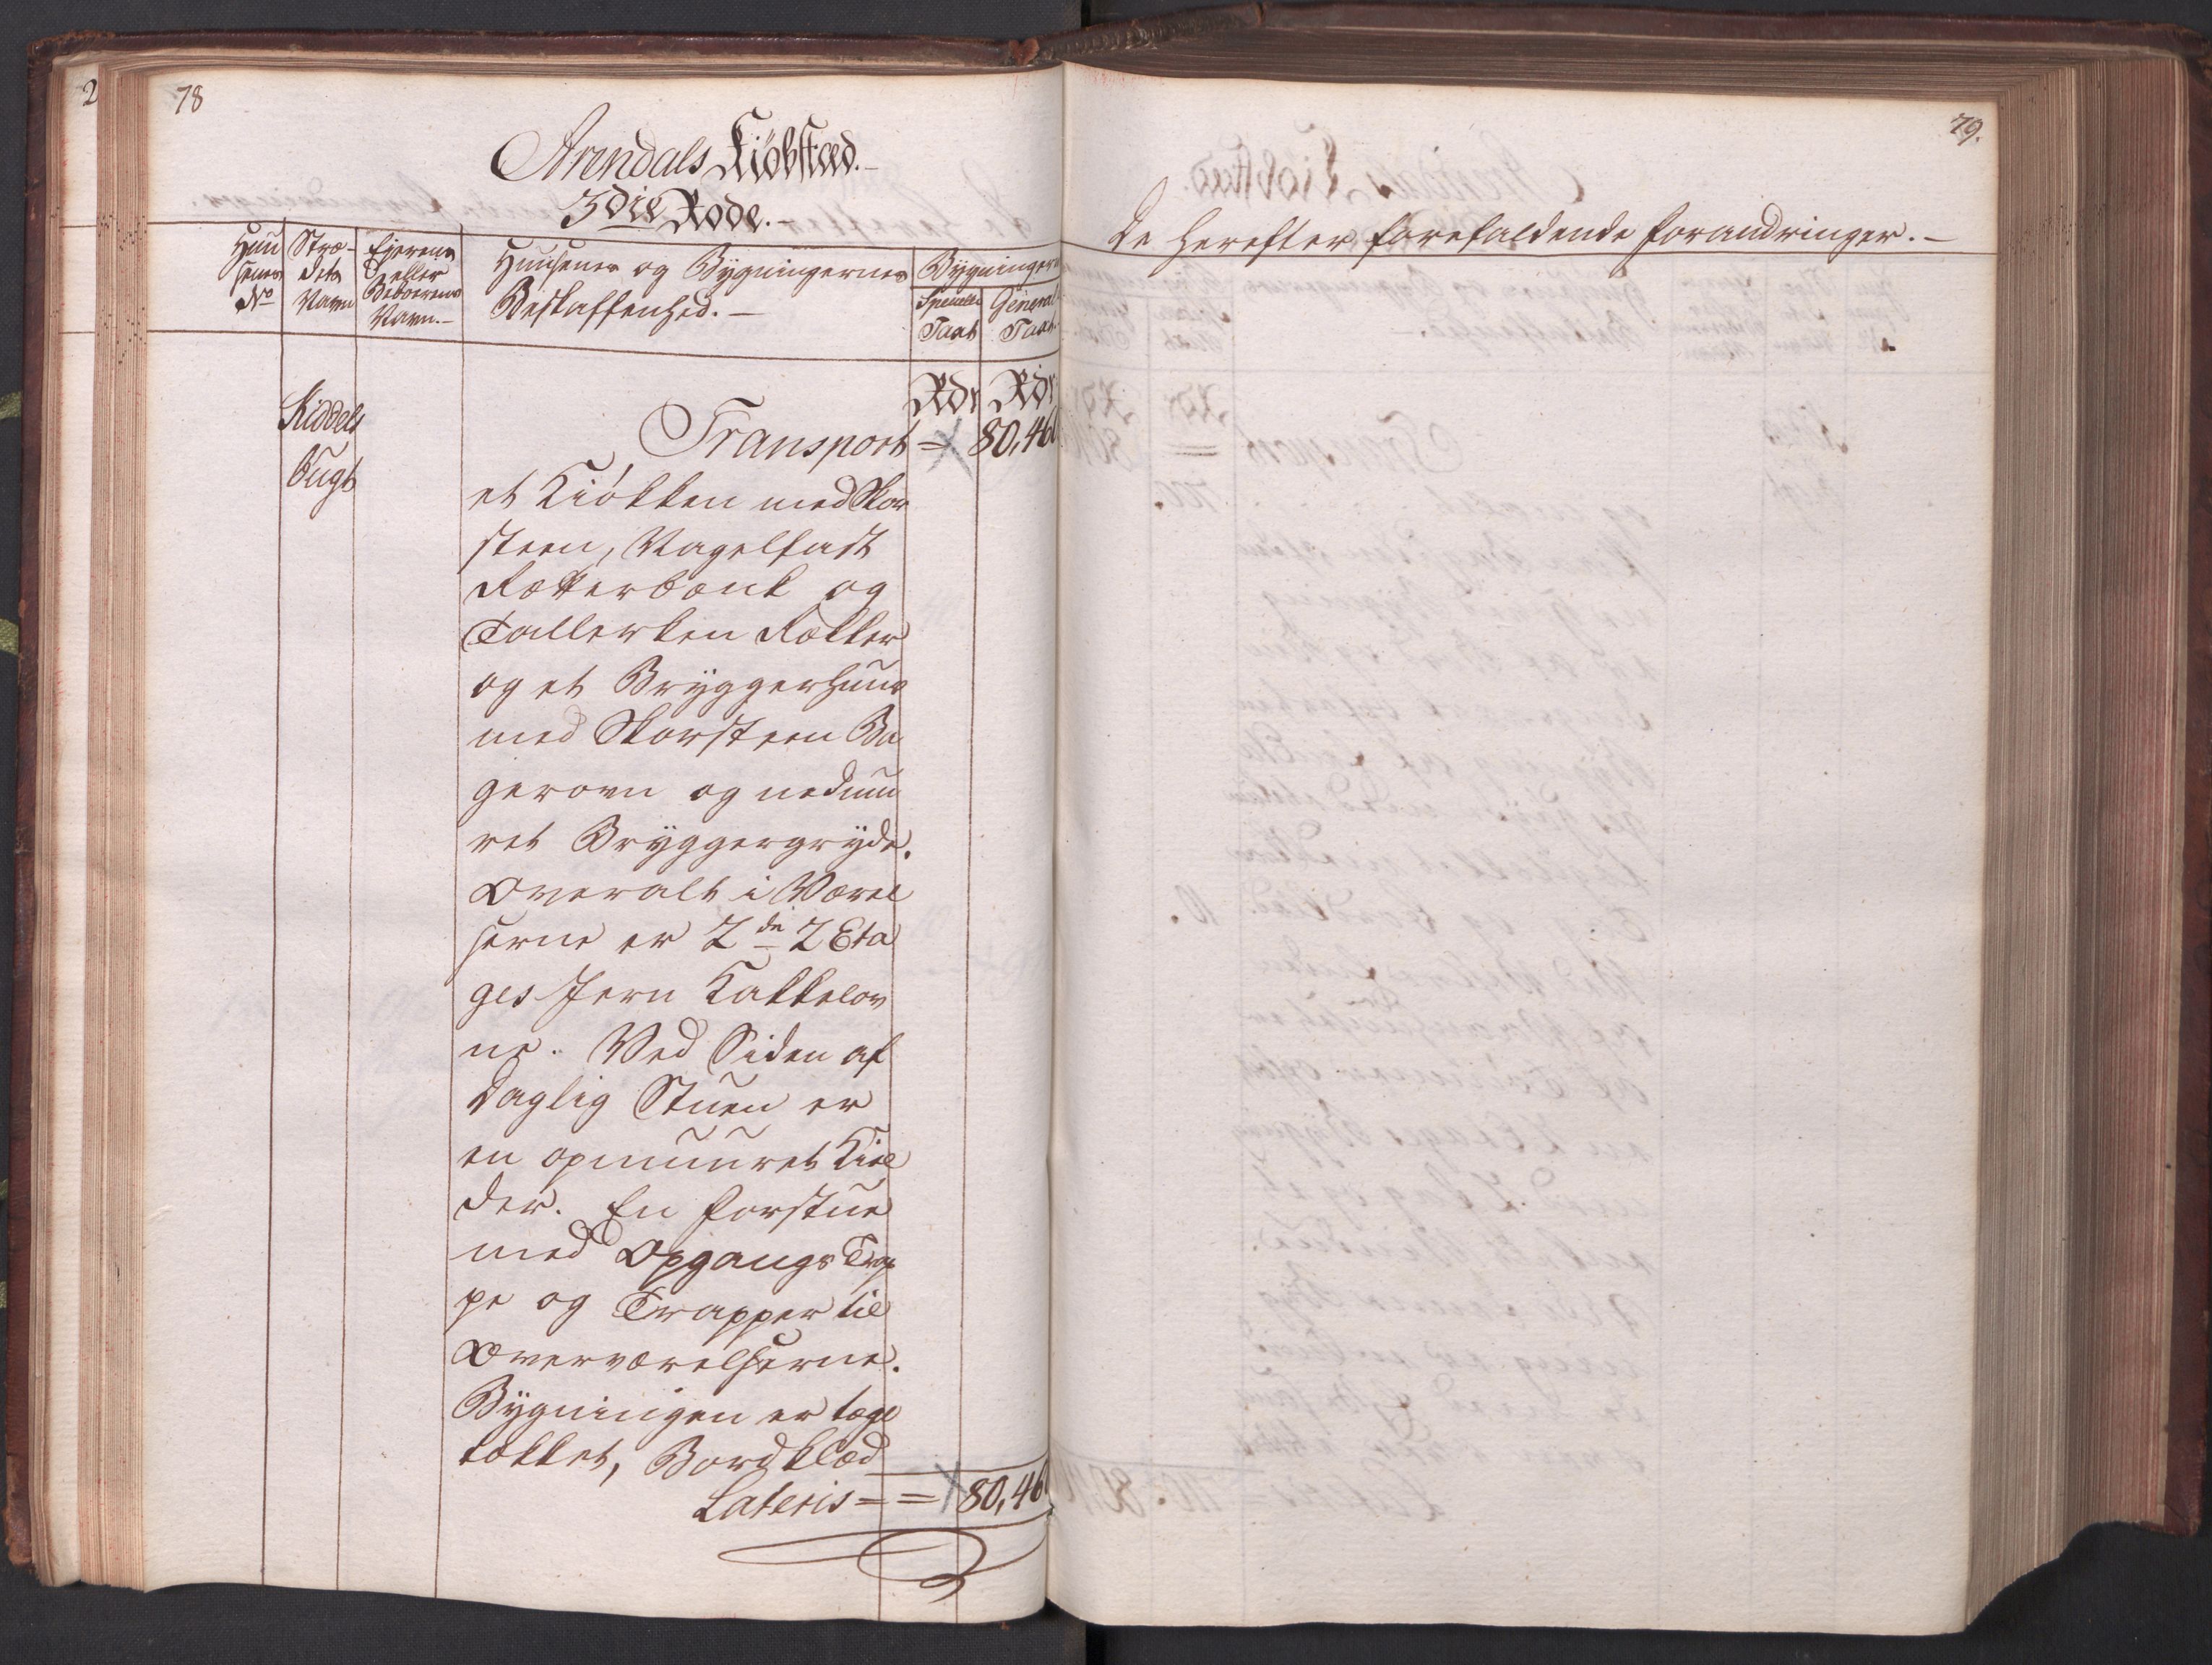 2
78
Arendals Kiøbstæd.
3die Rode.
Huu
senes
No
Stræ-
dets
Navn
Ejerens
eller
Beboerens
Navn.
Huusenes og Bygningernes
Beskaffenhed.
Bygningern
Speciele
Taxt
General
Taxt.
Rdr Rdr
Kiddels
Bugt
Transport = 80,460
et Kiøkken med Skor
steen, Nagelfast
Rætterbænk og
Tallerken Rækker
og et Bryggerhuus
med Skorsteen Ba
gerovn og nedmu
ret Bryggergryde.
Overalt i Værel
serne er 2de 2 Eta
ges Jern Kakkelov
ne. Ved Siden af
Daglig Stuen er
en opmuuret Kiel
der. En Forstue
med Opgangs Trap
pe og Trapper til
Overværelserne.
Bygningen er tægl
tækket, Bordklæd
Lateris = = 80,460
79.
De herefter forefaldende Forandringer.